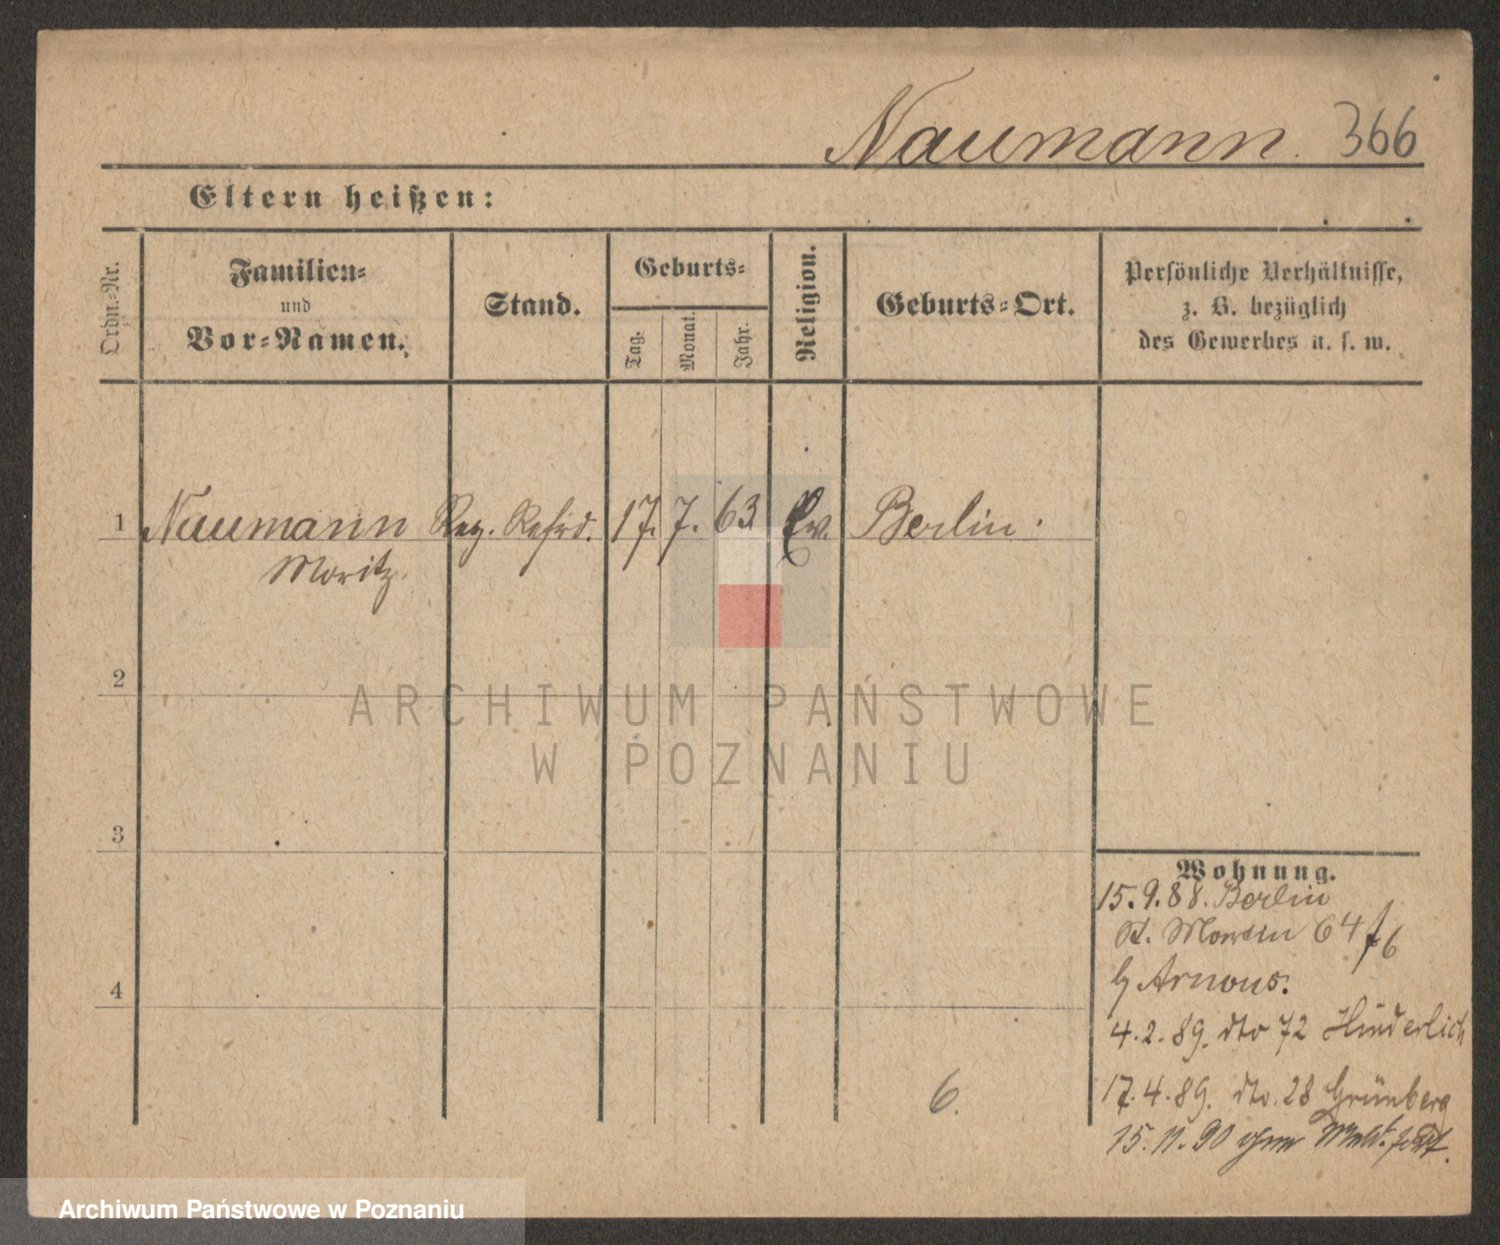 Naumann. 366
Eltern heißen:
Ordn.-Nr.
Familien-
und
Vor-Namen.
Stand.
Geburts-
Tag.
Monat.
Jahr.
Religion.
Geburts-Ort.
Persönliche Verhältnisse,
z. B. bezüglich
des Gewerbes u. s. w.
1 Naumann Reg. Refrd. 17. 7. 63 Ev. Berlin.
Moritz.
2
ARCHIWUM PAŃSTWOWE
W POZNANIU
3
Wohnung.
15. 9. 88. Berlin
St. Martin 64
b/ Arnous.
4
4. 2. 89. dto 72 Hinderlich
17. 4. 89. dto. 28 Grünberg
15. 11. 90 ohne Meld. fort.
6.
Archiwum Państwowe w Poznaniu